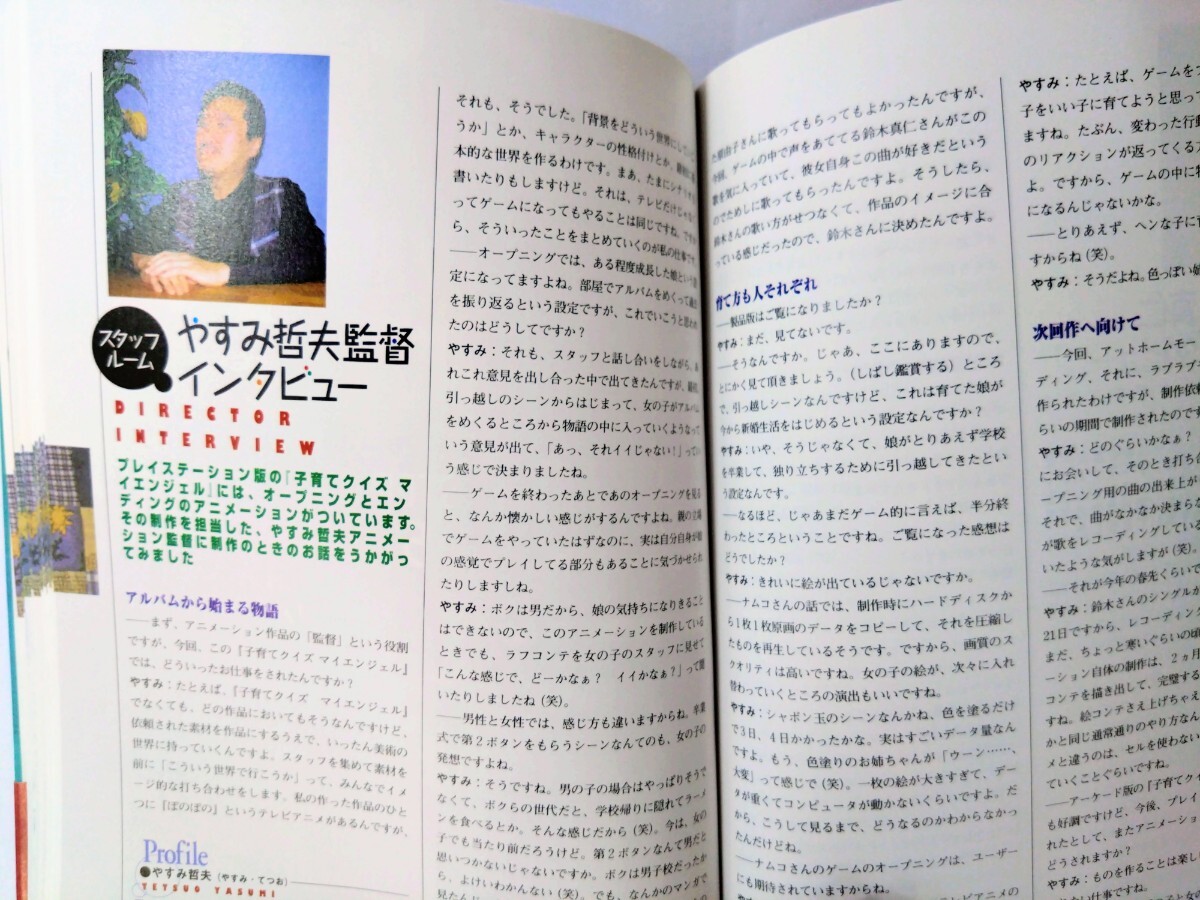 スタッフ
ルーム
やすみ哲夫監督
インタビュー
DIRECTOR
INTERVIEW
プレイステーション版の『子育てクイズ マ
イエンジェル』には、オープニングとエン
ディングのアニメーションがついています。
その制作を担当した、やすみ哲夫アニメー
ション監督に制作のときのお話をうかがっ
てみました
アルバムから始まる物語
──まず、アニメーション作品の「監督」という役割
ですが、今回、この『子育てクイズ マイエンジェル』
では、どういったお仕事をされたんですか？
やすみ：たとえば、『子育てクイズ マイエンジェル』
でなくても、どの作品においてもそうなんですけど、
依頼された素材を作品にするうえで、いったん美術の
世界に持っていくんですよ。スタッフを集めて素材を
前に「こういう世界で行こうか」って、みんなでイメ
ージ的な打ち合わせをします。私の作った作品のひと
つに『ぼのぼの』というテレビアニメがあるんですが、
Profile
やすみ哲夫（やすみ・てつお）
TETSUO YASUMI
それも、そうでした。「背景をどういう世界にして
うか」とか、キャラクターの性格付けとか、
本的な世界を作るわけです。まあ、たまにシナリオ
書いたりもしますけど。それは、テレビだけじゃ
ってゲームになってもやることは同じですね。ですか
ら、そういったことをまとめていくのが私の仕事です
──オープニングでは、ある程度成長した娘という設
定になってますよね。部屋でアルバムをめくって過去
を振り返るという設定ですが、これでいこうと思われ
たのはどうしてですか？
やすみ：それも、スタッフと話し合いをしながら、あ
れこれ意見を出し合った中で出てきたんですが、最初
引っ越しのシーンからはじまって、女の子がアルバム
をめくるところから物語の中に入っていくようなって
いう意見が出て、「あっ、それイイじゃない！」ってい
う感じで決まりましたね。
──ゲームを終わったあとであのオープニングを見る
と、なんか懐かしい感じがするんですよね。親の立場
でゲームをやっていたはずなのに、実は自分自身が娘
の感覚でプレイしてる部分もあることに気づかせられ
たりしますしね。
やすみ：ボクは男だから、娘の気持ちになりきること
はできないので、このアニメーションを制作している
ときでも、ラフコンテを女の子のスタッフに見せて
「こんな感じで、どーかなぁ？　イイかなぁ？」って聞
いたりしましたね（笑）。
──男性と女性では、感じ方も違いますからね。卒業
式で第２ボタンをもらうシーンなんてのも、女の子の
発想ですよね。
やすみ：そうですね。男の子の場合はやっぱりそうで
なくて、ボクらの世代だと、学校帰りに隠れてラーメ
ンを食べるとか。そんな感じだから（笑）。今は、女の
子でも当たり前だろうけど。第２ボタンなんて男だと
思いつかないじゃないですか。ボクは男子校だったか
ら、よけいわかんない（笑）。でも、なんかのマンガで
た原由子さんに歌ってもらってもよかったんですが、
今回、ゲームの中で声をあててる鈴木真仁さんがこの
歌を気に入っていて、彼女自身この曲が好きだという
のでためしに歌ってもらったんですよ。そうしたら、
鈴木さんの歌い方がせつなくて、作品のイメージに合
っている感じだったので、鈴木さんに決めたんですよ。
育て方も人それぞれ
──製品版はご覧になりましたか？
やすみ：まだ、見てないです。
──そうなんですか。じゃあ、ここにありますので、
とにかく見て頂きましょう。（しばし鑑賞する）ところ
で、引っ越しシーンなんですけど、これは育てた娘が
今から新婚生活をはじめるという設定なんですか？
やすみ：いや、そうじゃなくて、娘がとりあえず学校
を卒業して、独り立ちするために引っ越してきたとい
う設定なんです。
──なるほど、じゃあまだゲーム的に言えば、半分終
わったところということですね。ご覧になった感想は
どうでしたか？
やすみ：きれいに絵が出ているじゃないですか。
──ナムコさんの話では、制作時にハードディスクか
ら１枚１枚原画のデータをコピーして、それを圧縮し
たものを再生しているそうです。ですから、画質のス
クオリティは高いですね。女の子の絵が、次々に入れ
替わっていくところの演出もいいですね。
やすみ：シャボン玉のシーンなんかね、色を塗るだけ
で３日、４日かかったかな。実はすごいデータ量なん
ですよ。もう、色塗りのお姉ちゃんが「ウーン……、
大変」って感じで（笑）。一枚の絵が大きすぎて、デー
タが重くてコンピュータが動かないくらいですよ。だ
から、こうして見るまで、どうなるのかわからなかっ
たんだけどね。
──ナムコさんのゲームのオープニングは、ユーザー
にも期待されていますからね。
やすみ：たとえば、ゲームを
子をいい子に育てようと思って
ますね。たぶん、変わった行動
のリアクションが返ってくる
よ。ですから、ゲームの中に
になるんじゃないかな。
──とりあえず、ヘンな子に
すからね（笑）。
やすみ：そうだよね。色っぽい
次回作へ向けて
──今回、アットホームモー
ディング、それに、ラブラブ
作られたわけですが、制作依
らいの期間で制作されたのです
やすみ：どのぐらいかなぁ？
にお会いして、そのとき打ち合
ープニング用の曲の出来上が
それで、曲がなかなか決まら
が歌をレコーディングしてい
いたような気がしますが（笑）。
──それが今年の春先くらいで
やすみ：鈴木さんのシングルが
21日ですから、レコーディン
まだ、ちょっと寒いぐらいの頃
ーション自体の制作は、２ヵ月
コンテを描き出して、完璧する
すね。絵コンテさえ上げちゃえ
かと同じ通常通りのやり方な
メと違うのは、セルを使わない
ていくことぐらいですね。
──アーケード版の『子育てクイ
も好調ですけど、今後、プレイ
れたとして、またアニメーション
どうされますか？
やすみ：ものを作ることは楽し